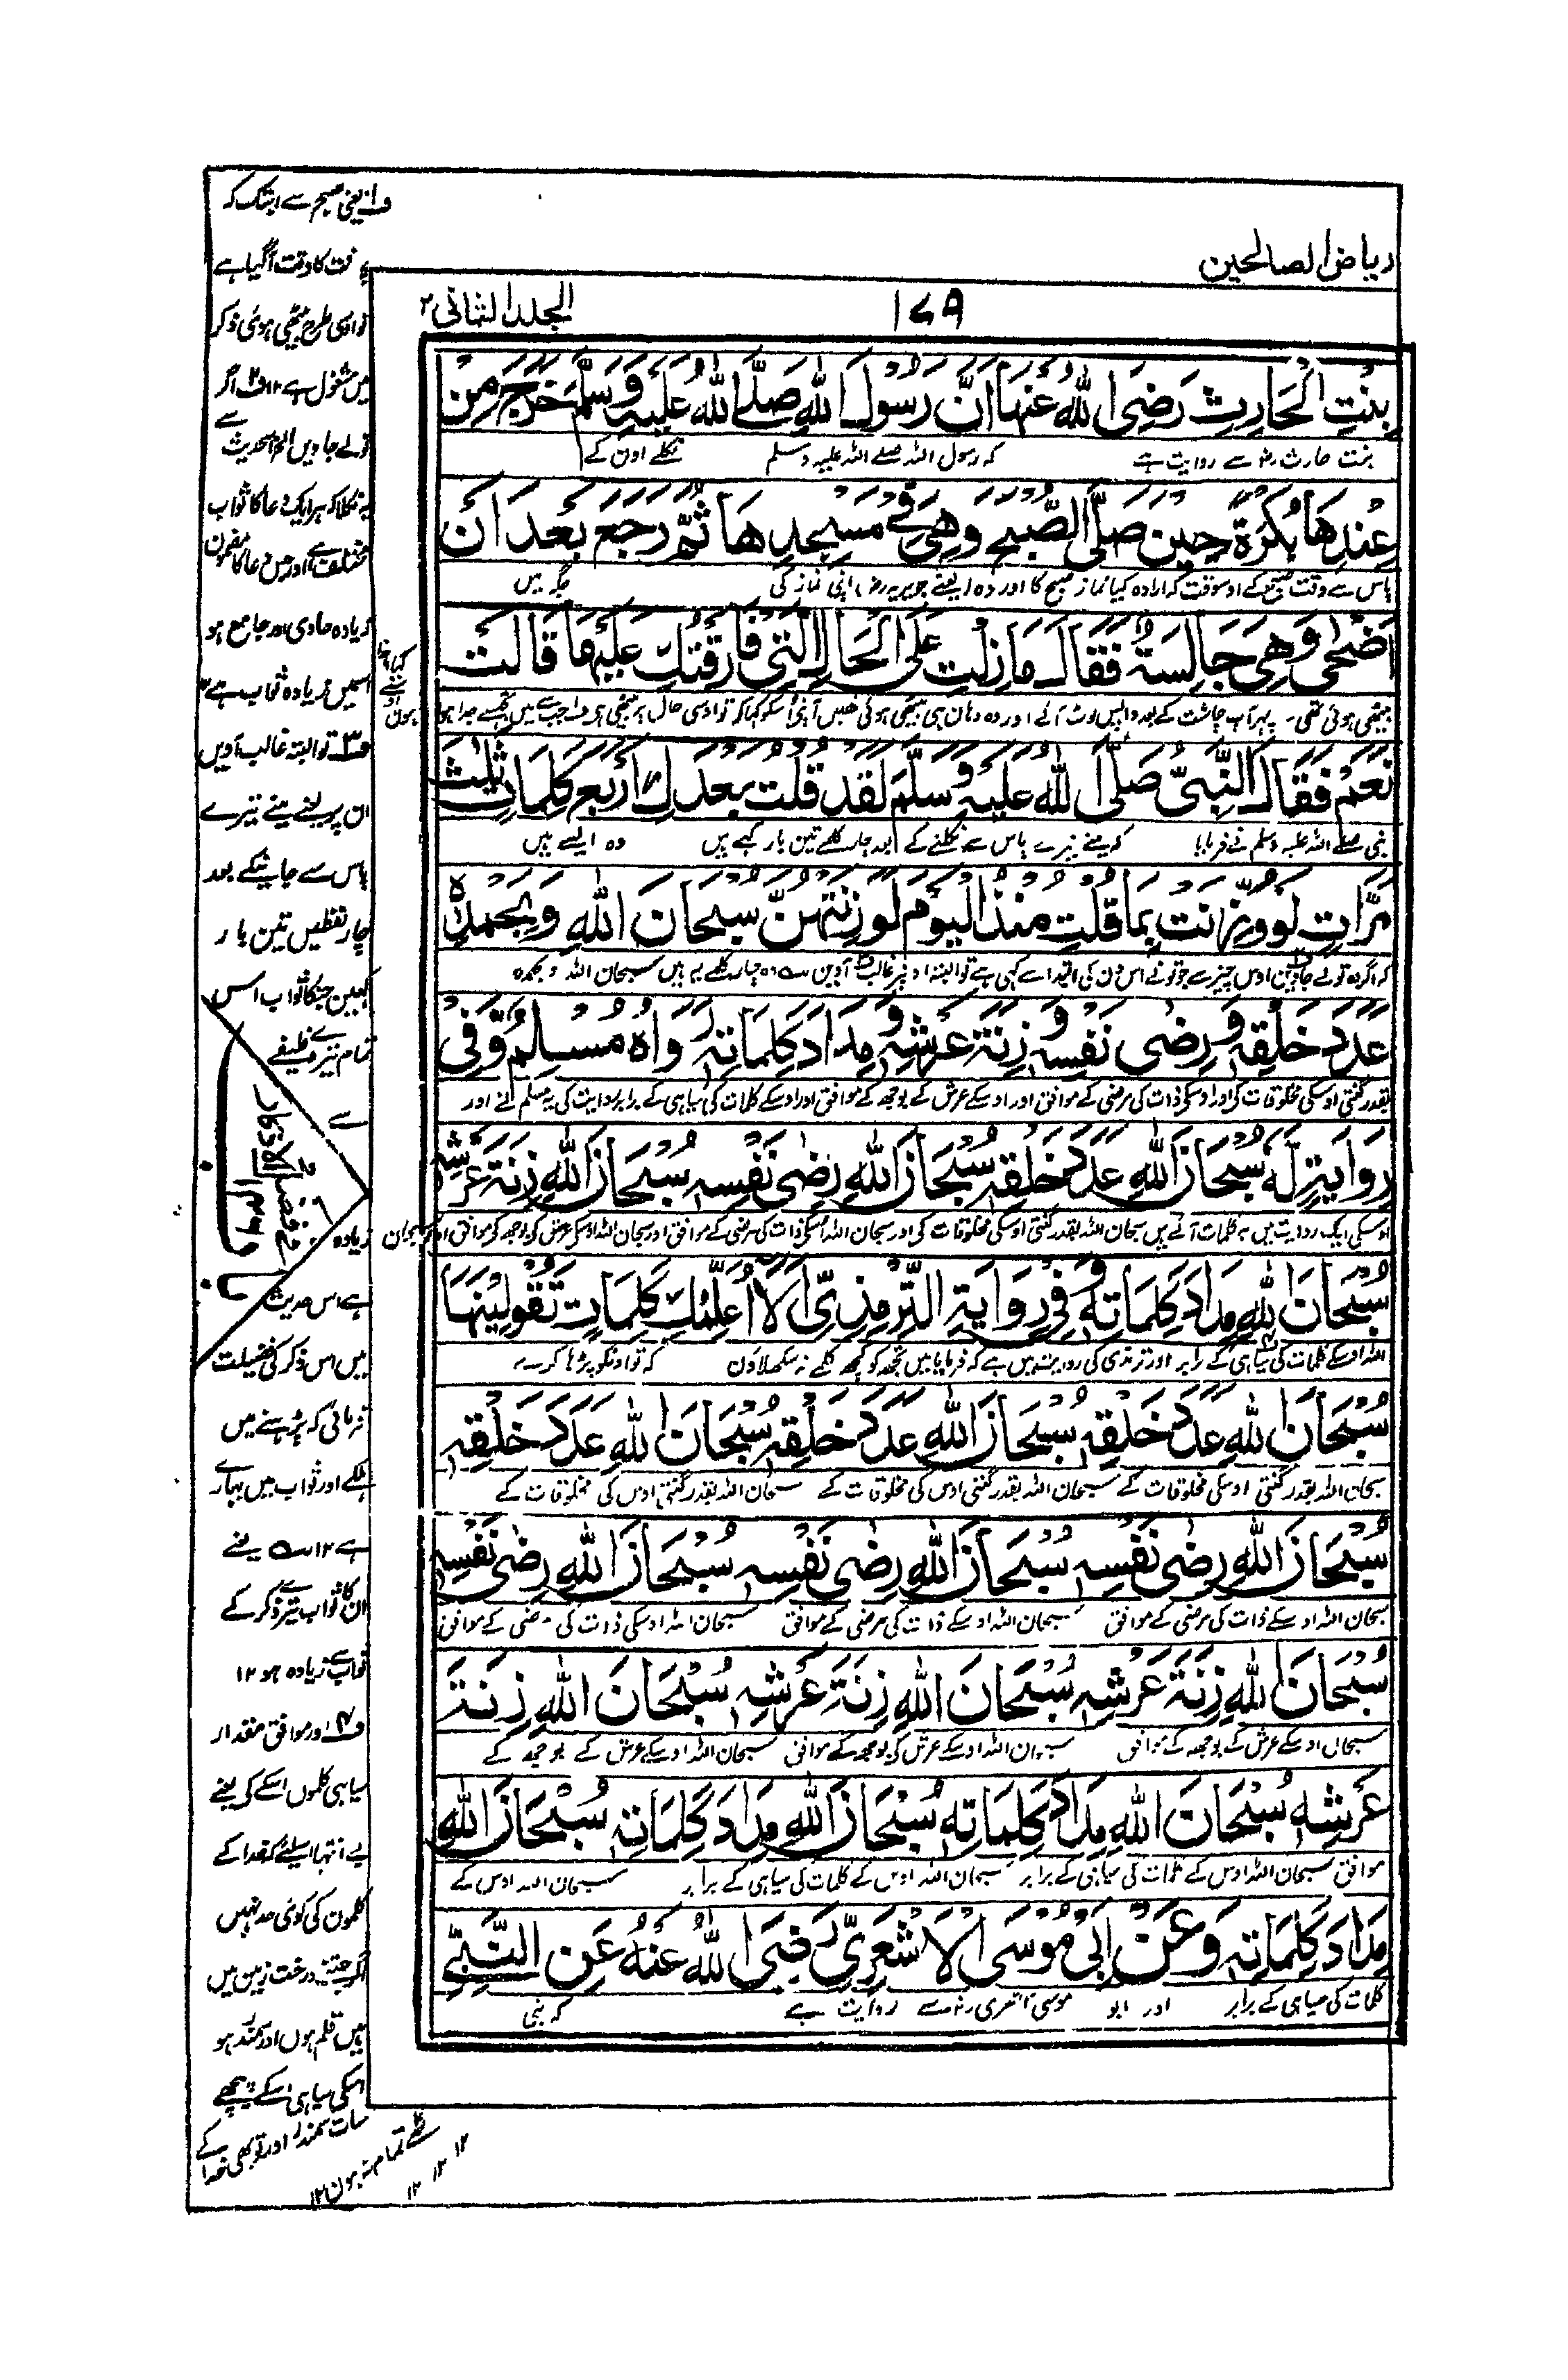 ریاض الصالحین
۱۷۹
الجلد الثانی ۲
بِنْتِ الْحَارِثِ رَضِیَ اللّٰهُ عَنْهَا اَنَّ رَسُوْلَ اللّٰهِ صَلَّی اللّٰهُ عَلَیْهِ وَسَلَّمَ خَرَجَ مِنْ
بنت حارث رضہ سے روایت ہے کہ رسول اللہ صلے اللہ علیہ وسلم نکلے اون کے
عِنْدِهَا بُکْرَةً حِیْنَ صَلَّی الصُّبْحَ وَهِیَ فِیْ مَسْجِدِهَا ثُمَّ رَجَعَ بَعْدَ اَنْ
پاس سے وقت صبح کے اوسوقت کہ ارادہ کیا نماز صبح کا اور وہ (یعنے جویریہ رضہ) اپنی نماز کی جگہ میں
اَضْحٰی وَهِیَ جَالِسَةٌ فَقَالَ مَا زِلْتِ عَلَی الْحَالِ الَّتِیْ فَارَقْتُكِ عَلَیْهَا قَالَتْ
بیٹھی ہوئی تھی۔ پہر آپ چاشت کے بعد واپس لوٹ آئے اور وہ وہاں ہی بیٹھی ہوئی تھیں آپنے اُسکو کہا کہ تو اوسی حال پر بیٹھی ہی جب سے میں تجھسے جدا ہوا ہوں
نَعَمْ فَقَالَ النَّبِیُّ صَلَّی اللّٰهُ عَلَیْهِ وَسَلَّمَ لَقَدْ قُلْتُ بَعْدَكِ اَرْبَعَ کَلِمَاتٍ ثَلٰثَ
نبی صلے اللہ علیہ وسلم نے فرمایا کہ مینے تیرے پاس سے نکلنے کے بعد چار کلمے تین بار کہے ہیں وہ ایسے ہیں
مَرَّاتٍ لَوْ وُزِنَتْ بِمَا قُلْتِ مُنْذُ الْیَوْمِ لَوَزَنَتْهُنَّ سُبْحَانَ اللّٰهِ وَبِحَمْدِهٖ
کہ اگر وہ تولے جاویں اوس چیز سے جو تونے اس دن کی ابتدا سے کہی ہے تو البتہ اوپر غالب آویں وہ چار کلمے یہ ہیں سبحان اللہ وبحمدہ
عَدَدَ خَلْقِهٖ وَرِضٰی نَفْسِهٖ وَزِنَةَ عَرْشِهٖ وَمِدَادَ کَلِمَاتِهٖ رَوَاهُ مُسْلِمٌ وَّفِیْ
بقدر گنتی اوسکی مخلوقات کی اور اوسکی ذات کی مرضی کے موافق اور اوسکے عرش کے بوجھ کے موافق اور اوسکے کلمات کی سیاہی کے برابر روایت کی یہ مسلم نے اور
رِوَایَةٍ لَهٗ سُبْحَانَ اللّٰهِ عَدَدَ خَلْقِهٖ سُبْحَانَ اللّٰهِ رِضٰی نَفْسِهٖ سُبْحَانَ اللّٰهِ زِنَةَ عَرْشِهٖ
اوسکی ایک روایت میں یہ کلمات آئے ہیں سبحان اللہ بقدر گنتی اوسکی مخلوقات کی اور سبحان اللہ اوسکی ذات کی مرضی کے موافق اور سبحان اللہ اوسکی عرش کی بوجھ کے موافق اور سبحان
سُبْحَانَ اللّٰهِ مِدَادَ کَلِمَاتِهٖ وَفِیْ رِوَایَةِ التِّرْمِذِیِّ اَلَا اُعَلِّمُكِ کَلِمَاتٍ تَقُوْلِیْنَهَا
اللہ اوسکے کلمات کی سیاہی کے برابر اور ترمذی کی روایت میں ہے کہ فرمایا میں تجھ کو کچھ کلمے نہ سکھلاؤن کہ تو اونکو پڑھا کرے
سُبْحَانَ اللّٰهِ عَدَدَ خَلْقِهٖ سُبْحَانَ اللّٰهِ عَدَدَ خَلْقِهٖ سُبْحَانَ اللّٰهِ عَدَدَ خَلْقِهٖ
سبحان اللہ بقدر گنتی اوسکی مخلوقات کے سبحان اللہ بقدر گنتی اوس کی مخلوقات کے سبحان اللہ بقدر گنتی اوس کی مخلوقات کے
سُبْحَانَ اللّٰهِ رِضٰی نَفْسِهٖ سُبْحَانَ اللّٰهِ رِضٰی نَفْسِهٖ سُبْحَانَ اللّٰهِ رِضٰی نَفْسِهٖ
سبحان اللہ اوسکے ذات کی مرضی کے موافق سبحان اللہ اوسکے ذات کی مرضی کے موافق سبحان اللہ اوسکی ذات کی مرضی کے موافق
سُبْحَانَ اللّٰهِ زِنَةَ عَرْشِهٖ سُبْحَانَ اللّٰهِ زِنَةَ عَرْشِهٖ سُبْحَانَ اللّٰهِ زِنَةَ
سبحان اوسکے عرش کے بوجھ کے موافق سبحان اللہ اوسکے عرش کی بوجھ کے موافق سبحان اللہ اوسکے عرش کے بوجھ کے
عَرْشِهٖ سُبْحَانَ اللّٰهِ مِدَادَ کَلِمَاتِهٖ سُبْحَانَ اللّٰهِ مِدَادَ کَلِمَاتِهٖ سُبْحَانَ اللّٰهِ
موافق سبحان اللہ اوس کے کلمات کی سیاہی کے برابر سبحان اللہ اوس کے کلمات کی سیاہی کے برابر سبحان اللہ اوس کے
مِدَادَ کَلِمَاتِهٖ وَعَنْ اَبِیْ مُوْسَی الْاَشْعَرِیِّ رَضِیَ اللّٰهُ عَنْهُ عَنِ النَّبِیِّ
کلمات کی سیاہی کے برابر اور ابو موسیٰ اشعری رضہ سے روایت ہے کہ نبی
ف۱ یعنی صبح سے ابتک کہ
چاشت کا وقت آگیا ہے
تو اوسی طرح بیٹھی ہوئی ذکر
میں مشغول ہے ۱۲ ف۲ اگر
تولے جاویں الخ الحدیث سے
یہ نکلا کہ ہر ایک دعا کا ثواب
مختلف ہے اور جس دعا کا مضمون
زیادہ حاوی اور جامع ہو
اسمیں زیادہ ثواب ہے
ف۳ تو البتہ غالب آویں
ان پر یعنے مینے تیرے
پاس سے جانیکے بعد
چار لفظیں تین بار
کہیں جنکا ثواب اس
تمام تیرے وظیفے
سے
زیادہ
ہے اس حدیث
میں اس ذکر کی فضیلت
فرمائی کہ پڑہنے میں
ہلکے اور ثواب میں بہارے
ہے ۱۲ یعنے
ان کا ثواب تیرے ذکر کے
ثواب سے زیادہ ہو ۱۲
ف۴ اور موافق مقدار
سیاہی کلموں اسکے کی یعنے
بے انتہا اسلئے کہ خدا کے
کلمون کی کوئی حد نہیں
اگر جتنے درخت زمین میں
ہیں قلم ہوں اور سمندر ہو
اسکی سیاہی اسکے پیچھے
سات سمندر اور تو بھی خدا کے
کلمے تمام نہ ہون ۱۲
۱۲ ۱۲ ۱۲